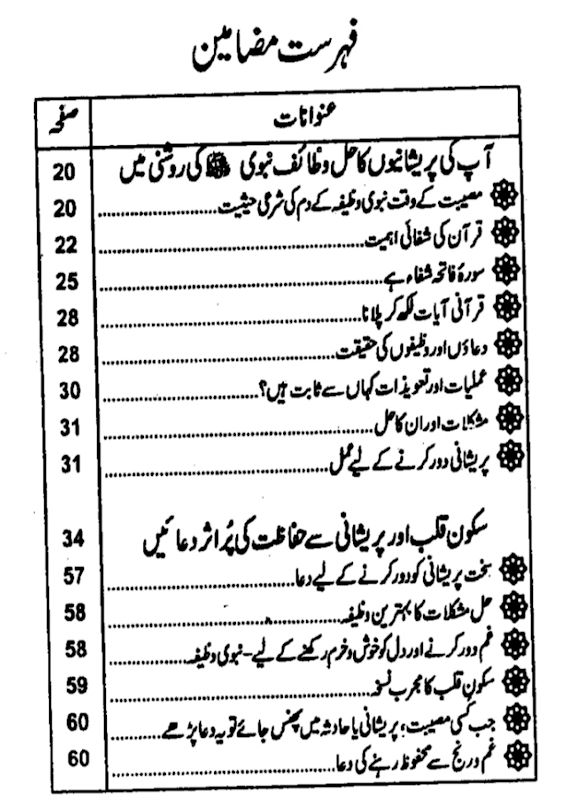 فہرست مضامین
عنوانات صفحہ
آپ کی پریشانیوں کا حل وظائف نبوی ﷺ کی روشنی میں 20
مصیبت کے وقت نبوی وظیفہ کے دم کی شرعی حیثیت 20
قرآن کی شفائی اہمیت 22
سورۂ فاتحہ شفاء ہے 25
قرآنی آیات لکھ کر پلانا 28
دعاؤں اور وظیفوں کی حقیقت 28
عملیات اور تعویذات کہاں سے ثابت ہیں؟ 30
مشکلات اور ان کا حل 31
پریشانی دور کرنے کے لیے عمل 31
سکون قلب اور پریشانی سے حفاظت کی پُر اثر دعائیں 34
سخت پریشانی کو دور کرنے کے لیے دعا 57
حل مشکلات کا بہترین وظیفہ 58
غم دور کرنے اور دل کو خوش و خرم رکھنے کے لیے - نبوی وظیفہ 58
سکونِ قلب کا مجرب نسخہ 59
جب کسی مصیبت؛ پریشانی یا حادثہ میں پھنس جائے تو یہ دعا پڑھے 60
غم و رنج سے محفوظ رہنے کی دعا 60